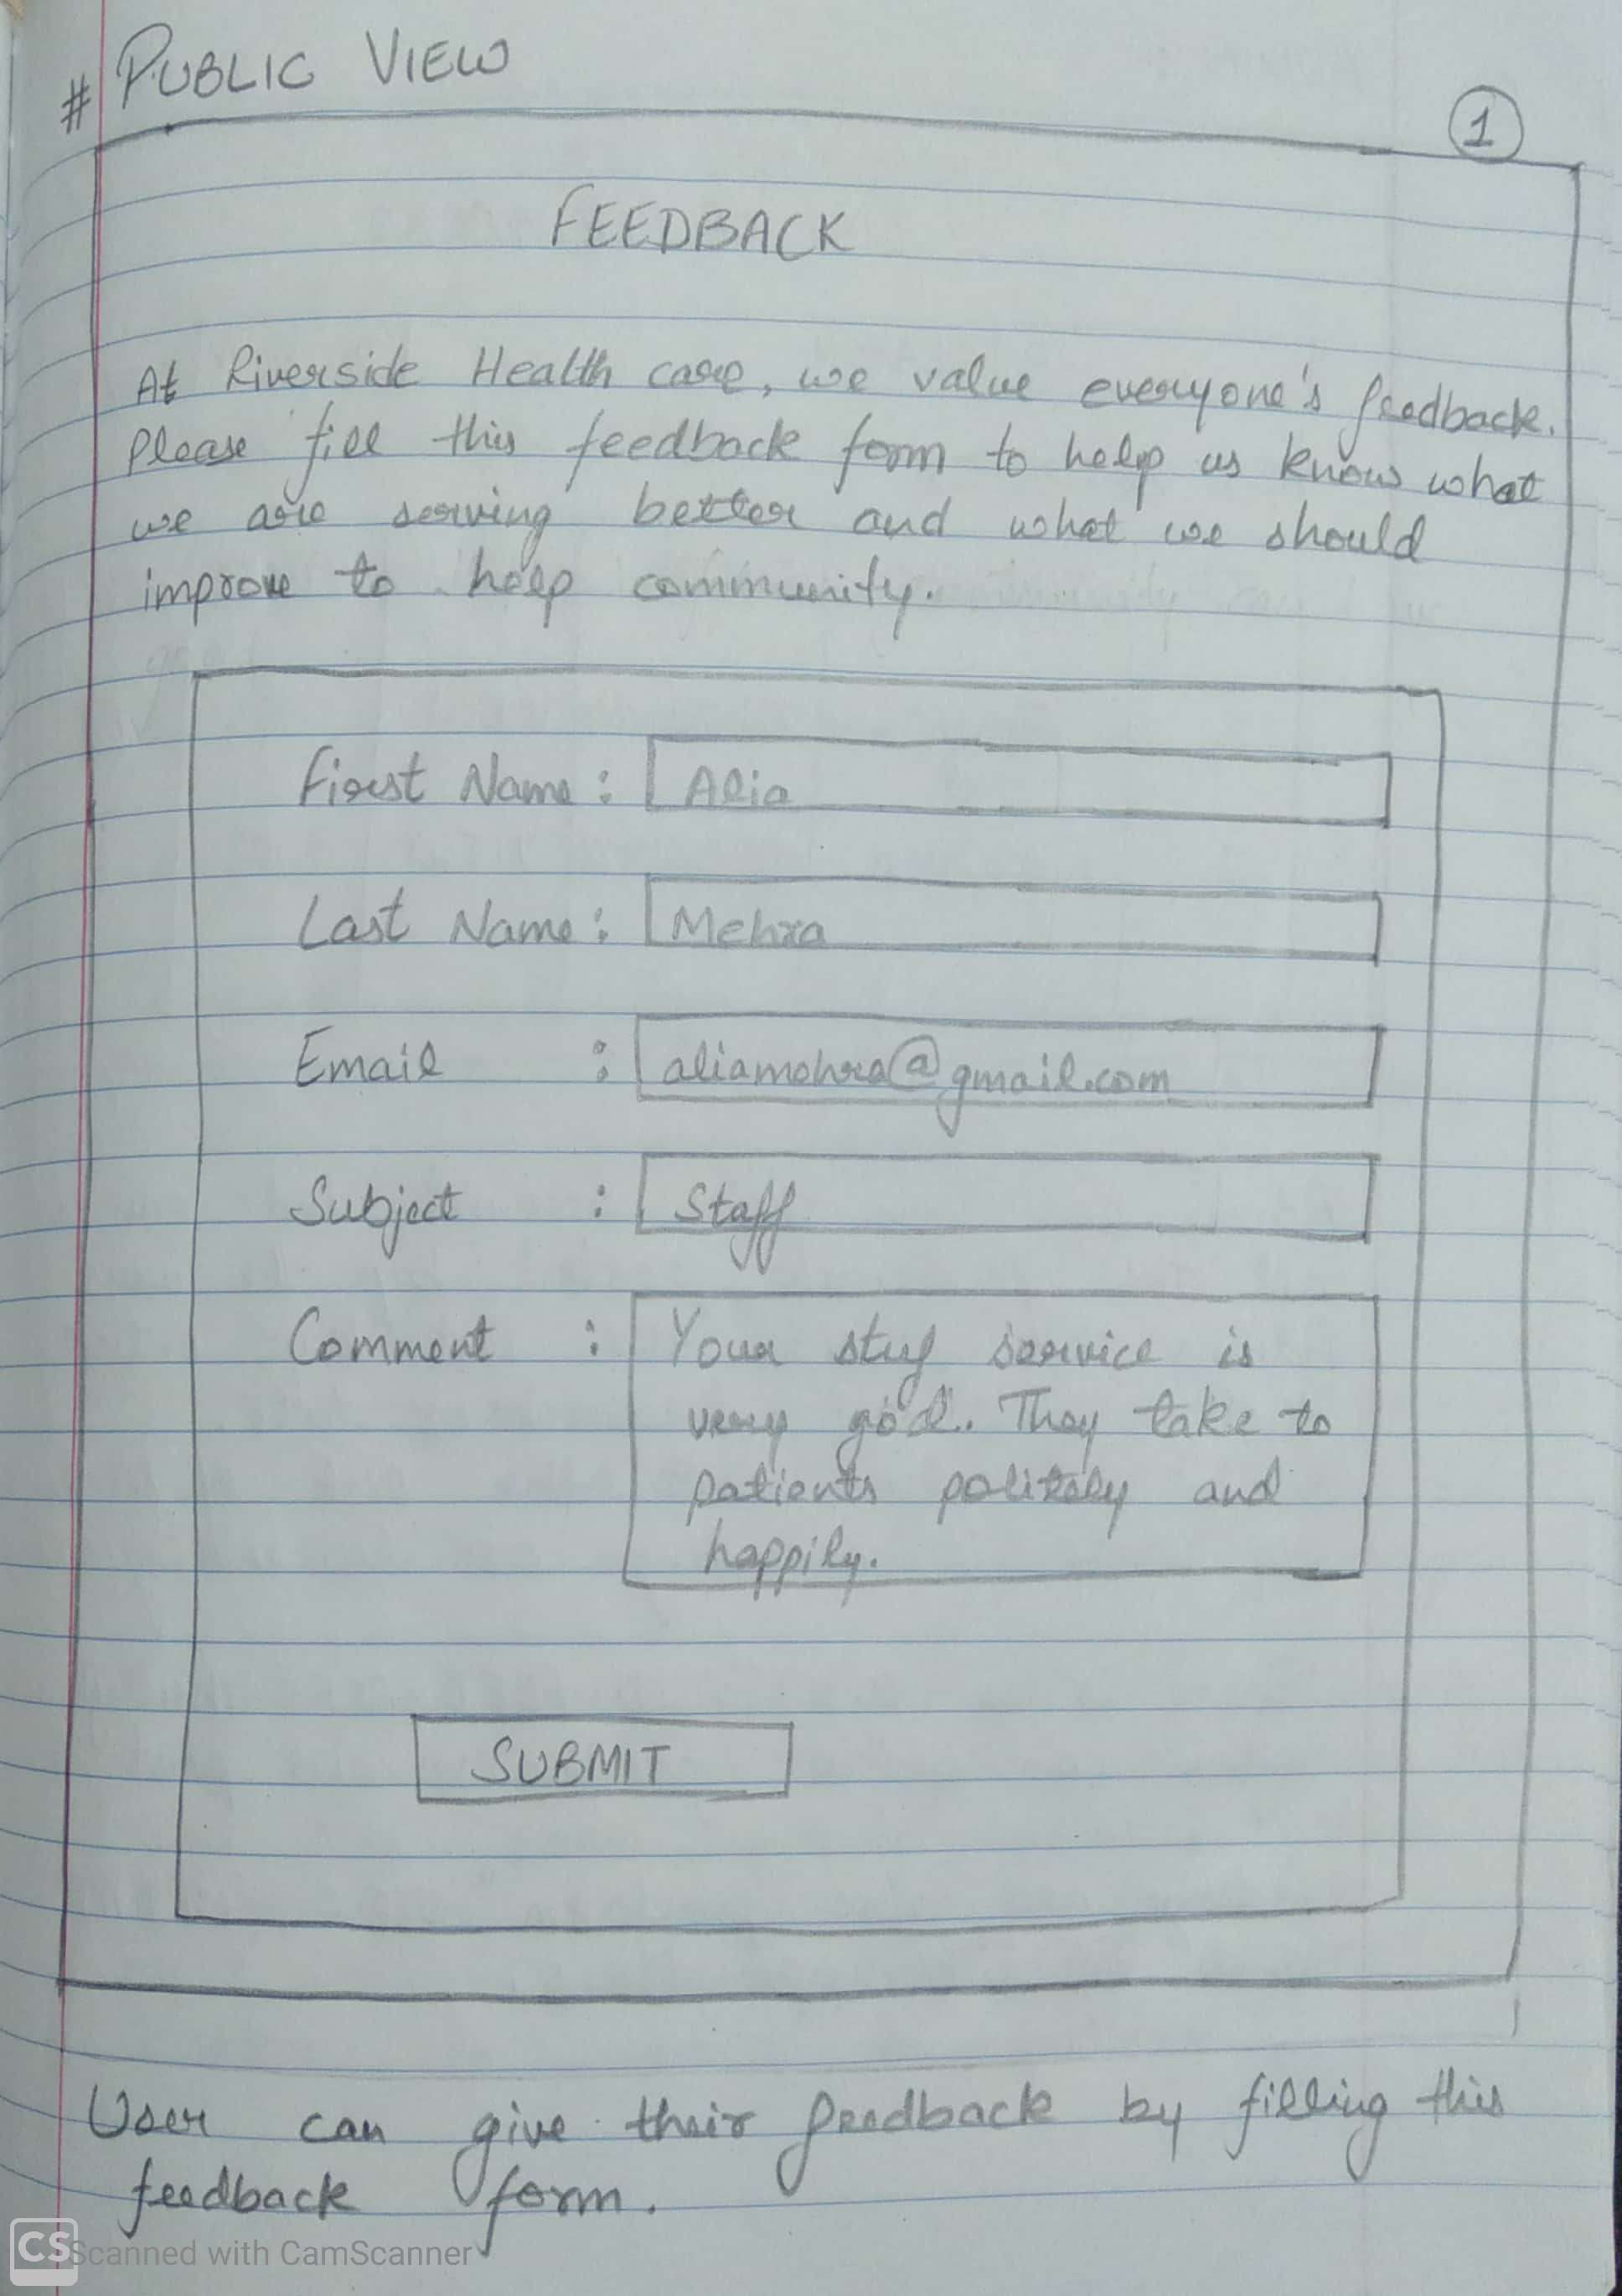 # PUBLIC VIEW
1
FEEDBACK
At Riverside Health care, we value everyone's feedback.
Please fill this feedback form to help us know what
we are serving better and what we should
improve to help community.
First Name : Alia
Last Name : Mehra
Email : aliamehra@gmail.com
Subject : Staff
Comment : Your stuf service is
very good. They take to
patients politely and
happily.
SUBMIT
User can give their feedback by filling this
feedback form.
CS Scanned with CamScanner